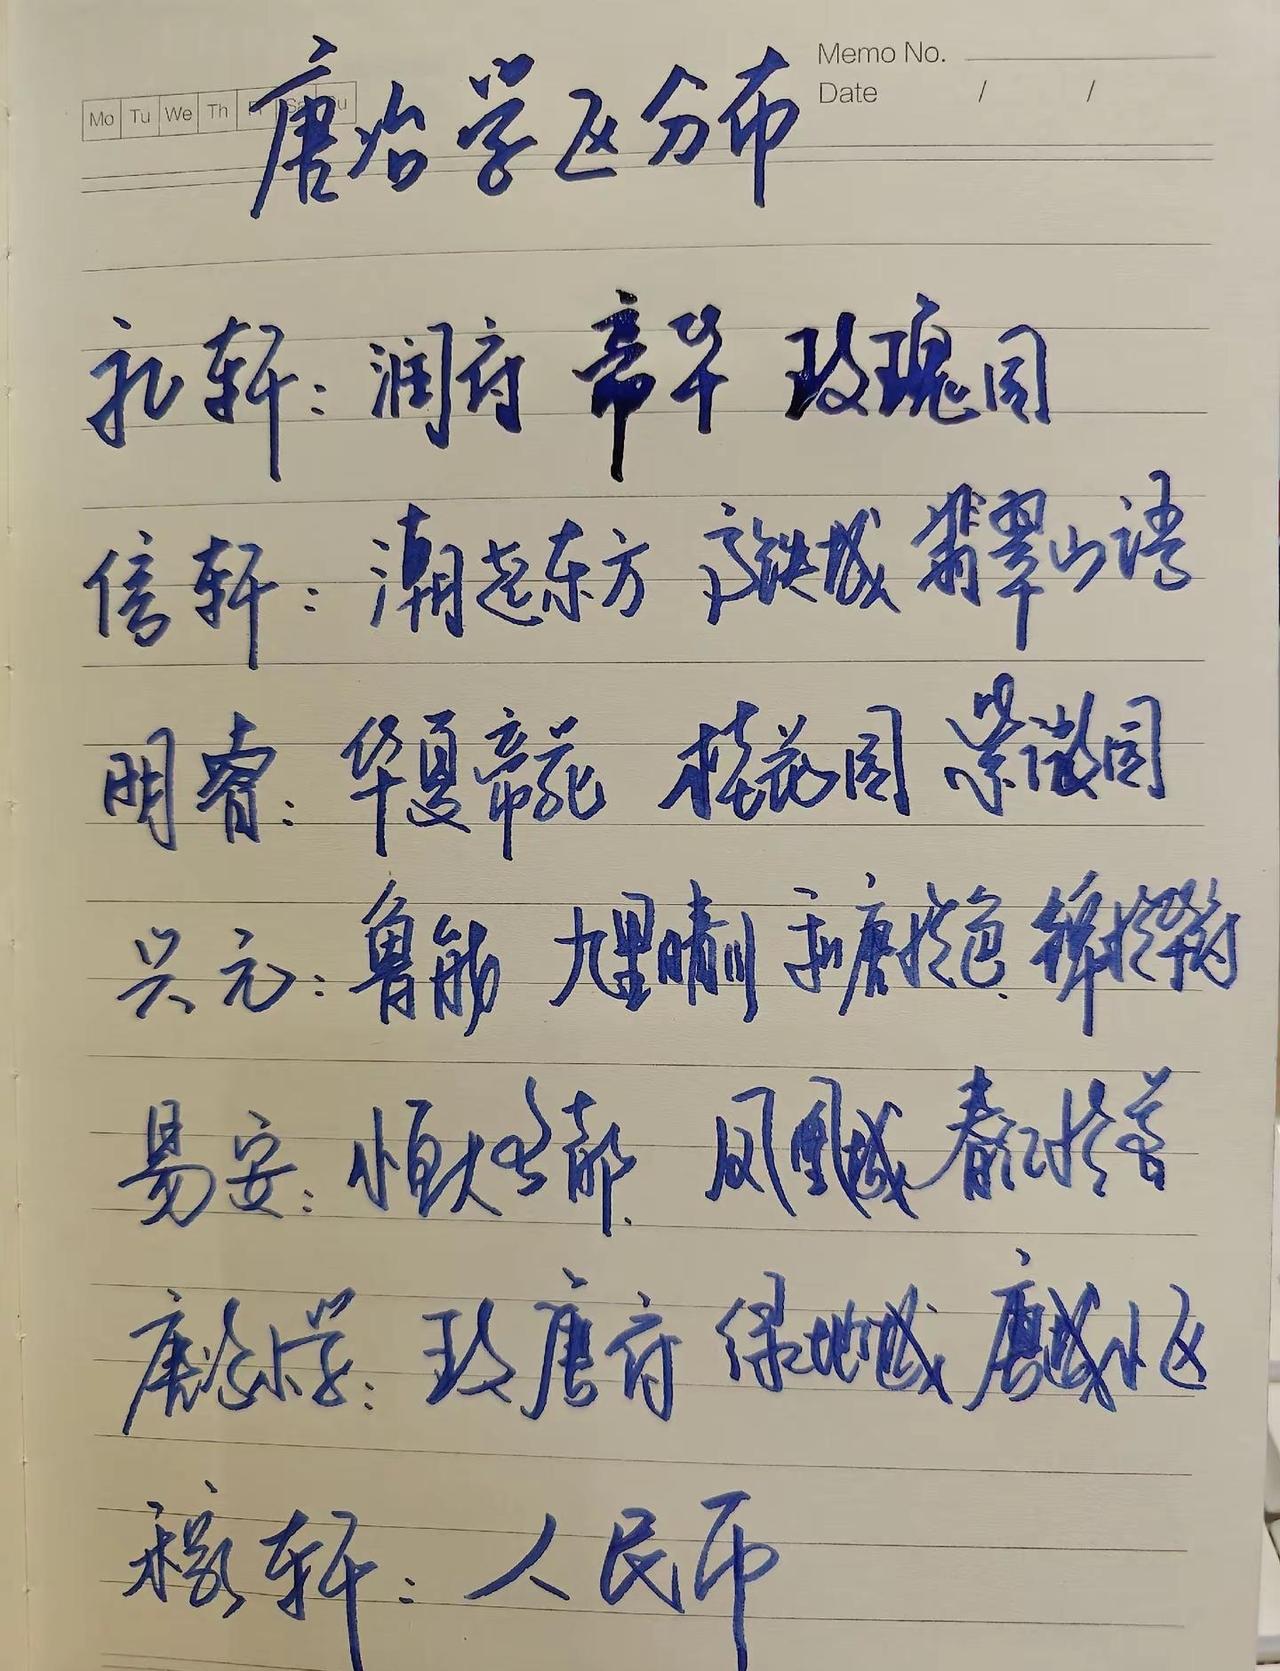 Memo No.
Mo Tu We Th Fr Sa Su
Date / /
唐冶学区分布
礼轩：润府 帝华 玫瑰园
信轩：潮起东方 高铁城 翡翠山语
明睿：华夏帝苑 花园 紫薇园
兴元：鲁能 九里晴川 和唐悦色 锦悦华府
易安：恒大名都 凤凰城 春江悦茗
唐冶小学：玖唐府 绿地城 唐城小区
稼轩：人民币